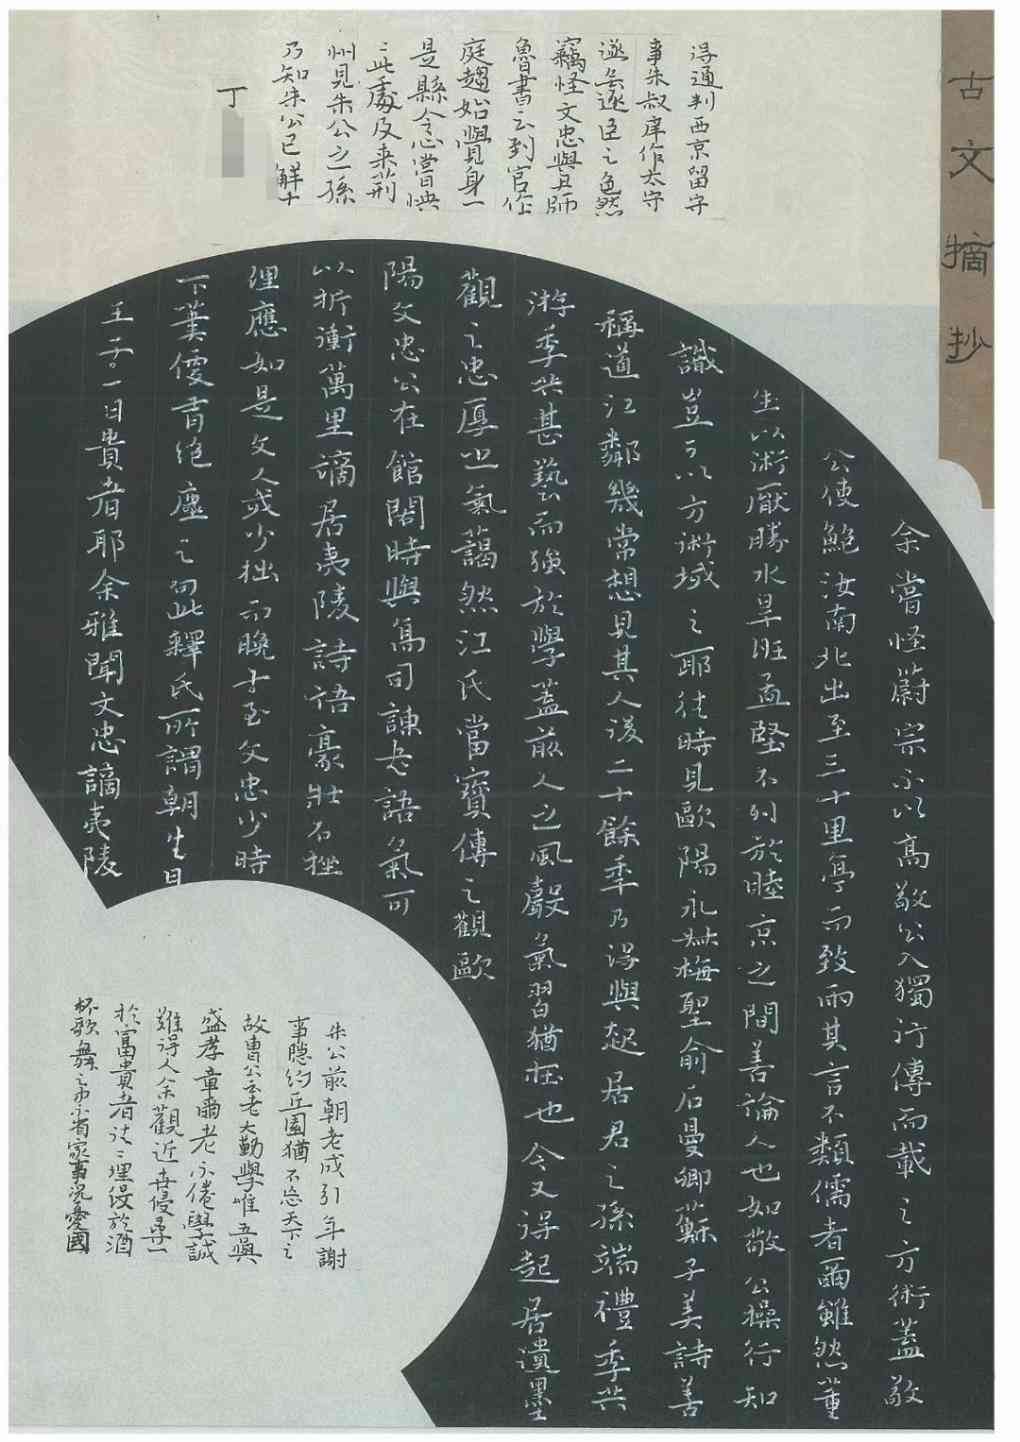 古文摘抄
余嘗怪蔚宗不以高敬公入獨行傳而載之方術蓋敬
公使鮑汝南北出至三十里亭而致雨其言不類儒者爾雖然董
生以術厭勝水旱眭孟堅不列於眭京之間善論人也如敬公操行知
識豈可以方術域之耶往時見歐陽永叔梅聖俞石曼卿蘇子美詩善
稱道江鄰幾常想見其人後二十餘季乃得與起居君之孫端禮季共
游季共甚藝而強於學蓋前人之風聲氣習猶在也今又得起居遺墨
觀之忠厚之氣藹然江氏當寶傳之觀歐
陽文忠公在館閣時與高司諫書語氣可
以折衝萬里謫居夷陵詩語豪壯不挫
理應如是文人或少拙而晚工至文忠少時
下筆便有絕塵之句此釋氏所謂朝生
王子一日貴者耶余雅聞文忠謫夷陵
得通判西京留守
事朱叔庠作太守
遂無逐臣之色然
竊怪文忠與尹師
魯書云到官作
庭趨始覺身
是縣令心嘗
此處及來荊
州見朱公之孫
乃知朱公已解
丁
朱公前朝老成引年謝
事隱約丘園猶不忘天下之
故曹公云老大勤學唯吾與
盛孝章爾老不倦學誠
難得人余觀近世侵尋
於富貴者往往埋沒於酒
杯歌舞之中不省家事況憂國